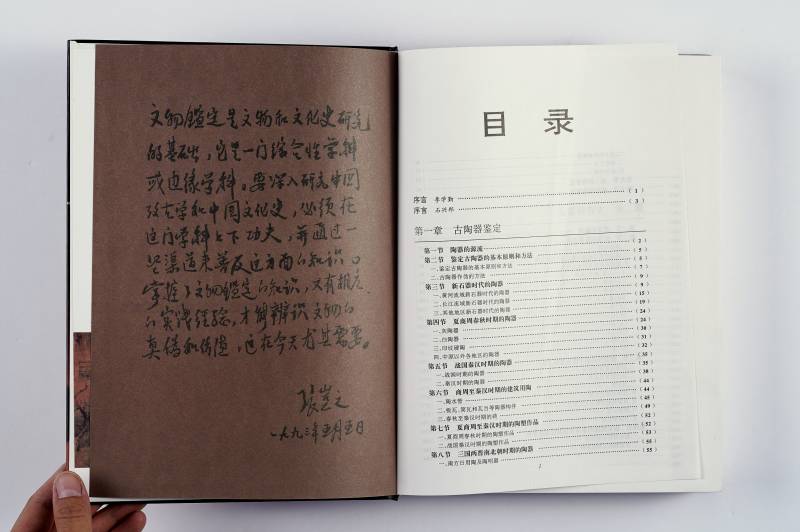 文物鑑定是文物和文化史研究
的基础，它是一门综合性学科
或边缘学科。要深入研究中国
考古学和中国文化史，必须在
这门学科上下功夫，并通过一
些渠道来普及这方面的知识。
掌握了文物鑑定的知识，又有相应
的实践经验，才能辨识文物的
真伪和价值，这在今天尤其需要。
张岂之
一九九三年五月五日
目 录
序言 李学勤 （1）
序言 石兴邦 （3）
第一章 古陶器鉴定
第一节 陶器的源流 （2）
第二节 鉴定古陶器的基本原则和方法 （5）
一、鉴定古陶器的基本原则和方法 （7）
二、古陶器作伪的方法 （9）
第三节 新石器时代的陶器 （9）
一、黄河流域新石器时代的陶器 （15）
二、长江流域新石器时代的陶器 （19）
三、其他地区新石器时代的陶器 （24）
第四节 夏商周春秋时期的陶器 （24）
一、灰陶器 （30）
二、白陶器 （31）
三、印纹硬陶 （32）
四、中原以外各地区的陶器 （35）
第五节 战国秦汉时期的陶器 （35）
一、战国时期的陶器 （38）
二、秦汉时期的陶器 （44）
第六节 商周至秦汉时期的建筑用陶 （44）
一、陶水管 （45）
二、板瓦、筒瓦和瓦当等陶器构件 （49）
三、春秋至秦汉时期的砖 （52）
第七节 夏商周至秦汉时期的陶塑作品 （52）
一、夏商周春秋时期的陶塑作品 （53）
二、战国秦汉时期的陶塑作品 （55）
第八节 三国两晋南北朝时期的陶器 （55）
一、南方日用陶及陶明器
1